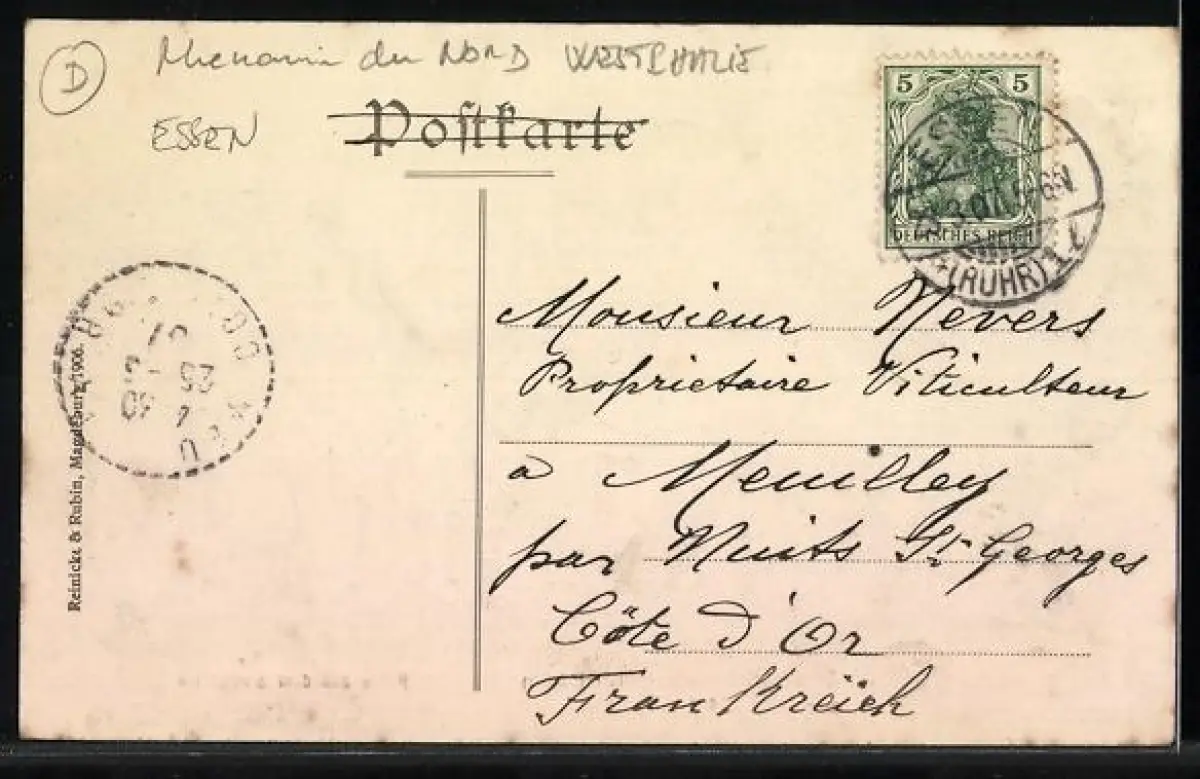 D
Rhenanie du NORD WESTPHALIE
ESSEN
Postkarte
5 5
DEUTSCHES REICH
(RUHR)
Monsieur Nevers
Propriétaire Viticulteur
à Meuilley
par Nuits St. Georges
Côte d'Or
Frankreich
Reinicke & Rubin, Magdeburg 1906.